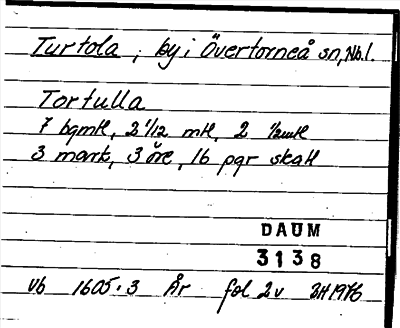 Turtola, by i Övertorneå sn, Nb.l.
Tortulla
7 bgmtl, 2 1/12 mtl, 2 1/2mtl
3 mark, 3 öre, 16 pgr skatt
DAUM
3138
Vb 1605:3 År fol 2v BH1976